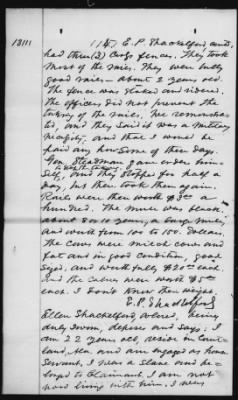 13111
115, E. P. Shackelford and
had three (3) Cross fences. They took
most of the rails. They were fully
good rails — about 2 years old.
The fence was staked and ridered.
The officers did not prevent the
taking of the rails. We remonstra-
ted, and they said it was a military
necessity, and that I would be
paid any how some of these days.
Gen. Steadman gave order him-
self, to stop the taking, and they stopped for half a
day, but then took them again.
Rails were then worth $3 a
hundred. The mule was black,
about 9 or 10 years, a large mule,
and worth from 100 to 150 Dollars.
The cows were milch cows and
fat and in good condition, good
size, and worth fully $20 each
and the calves were worth $5
each. I don't know their weight.
E. P. Shackelford
Ellen Shackelford, colored, being
duly sworn, deposes and says: I
am 22 years old, reside in
and am engaged as house
servant. I was a slave and be-
longed to Claimant. I am not
now living with him. I was